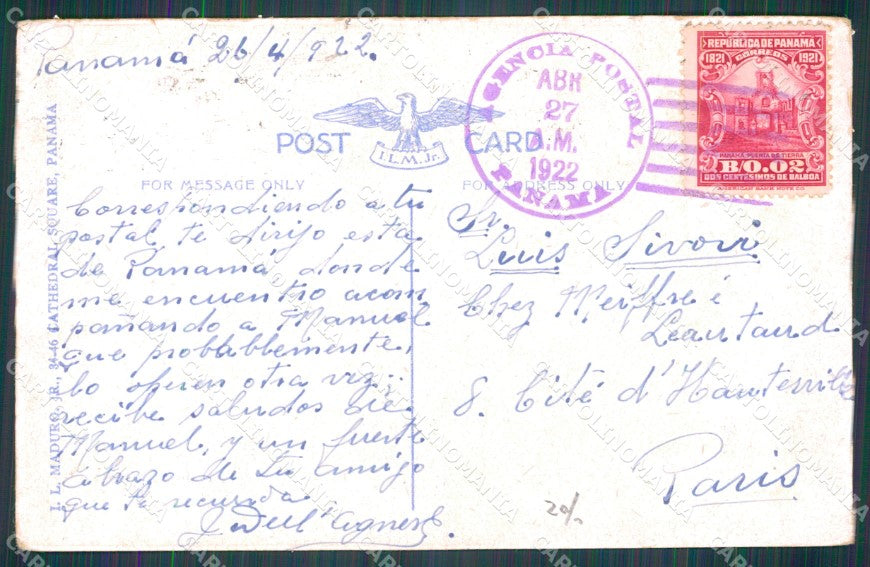 Panamá 26/4/922.
POST CARD
I.L.M.Jr.
FOR MESSAGE ONLY
FOR ADDRESS ONLY
AGENCIA POSTAL
ABR
27
A.M.
1922
PANAMA
REPUBLICA DE PANAMÁ
1821 CORREOS 1921
PANAMÁ, PUERTA DE TIERRA
B/0.02
DOS CENTESIMOS DE BALBOA
AMERICAN BANK NOTE CO.
Correspondiendo a tu
postal te dirijo esta
de Panamá donde
me encuentro acom
pañando a Manuel
que probablemente,
lo operen otra vez..
recibe saludos de
Manuel, y un fuerte
abrazo de tu amigo
que te recuerda
Sr.
Luis Sivori
Chez Meiffre é
Leautaud
8. Cité d'Hauteville
Paris
20/-
I. L. MADURO, JR., 34-46 CATHEDRAL SQUARE, PANAMA
CARTOLINOMANIA